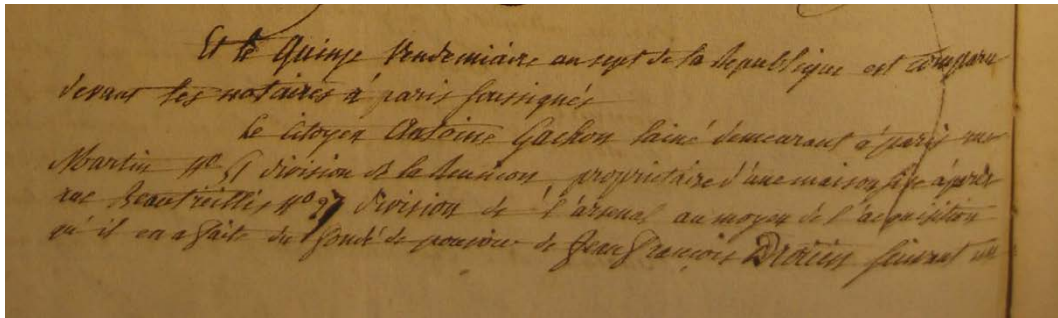 Et le Quinze Vendemiaire an sept de la Republique est comparu
devant les notaires à paris soussignés
Le Citoyen Antoine Gachon lainé demeurant à paris rue
Martin No division de la Reunion, proprietaire d'une maison sise à paris
rue Beautreillis No 9 division de l'arsenal au moyen de l'acquisition
qu'il en a faite du fondé de pouvoir de Jean François Drouin suivant un